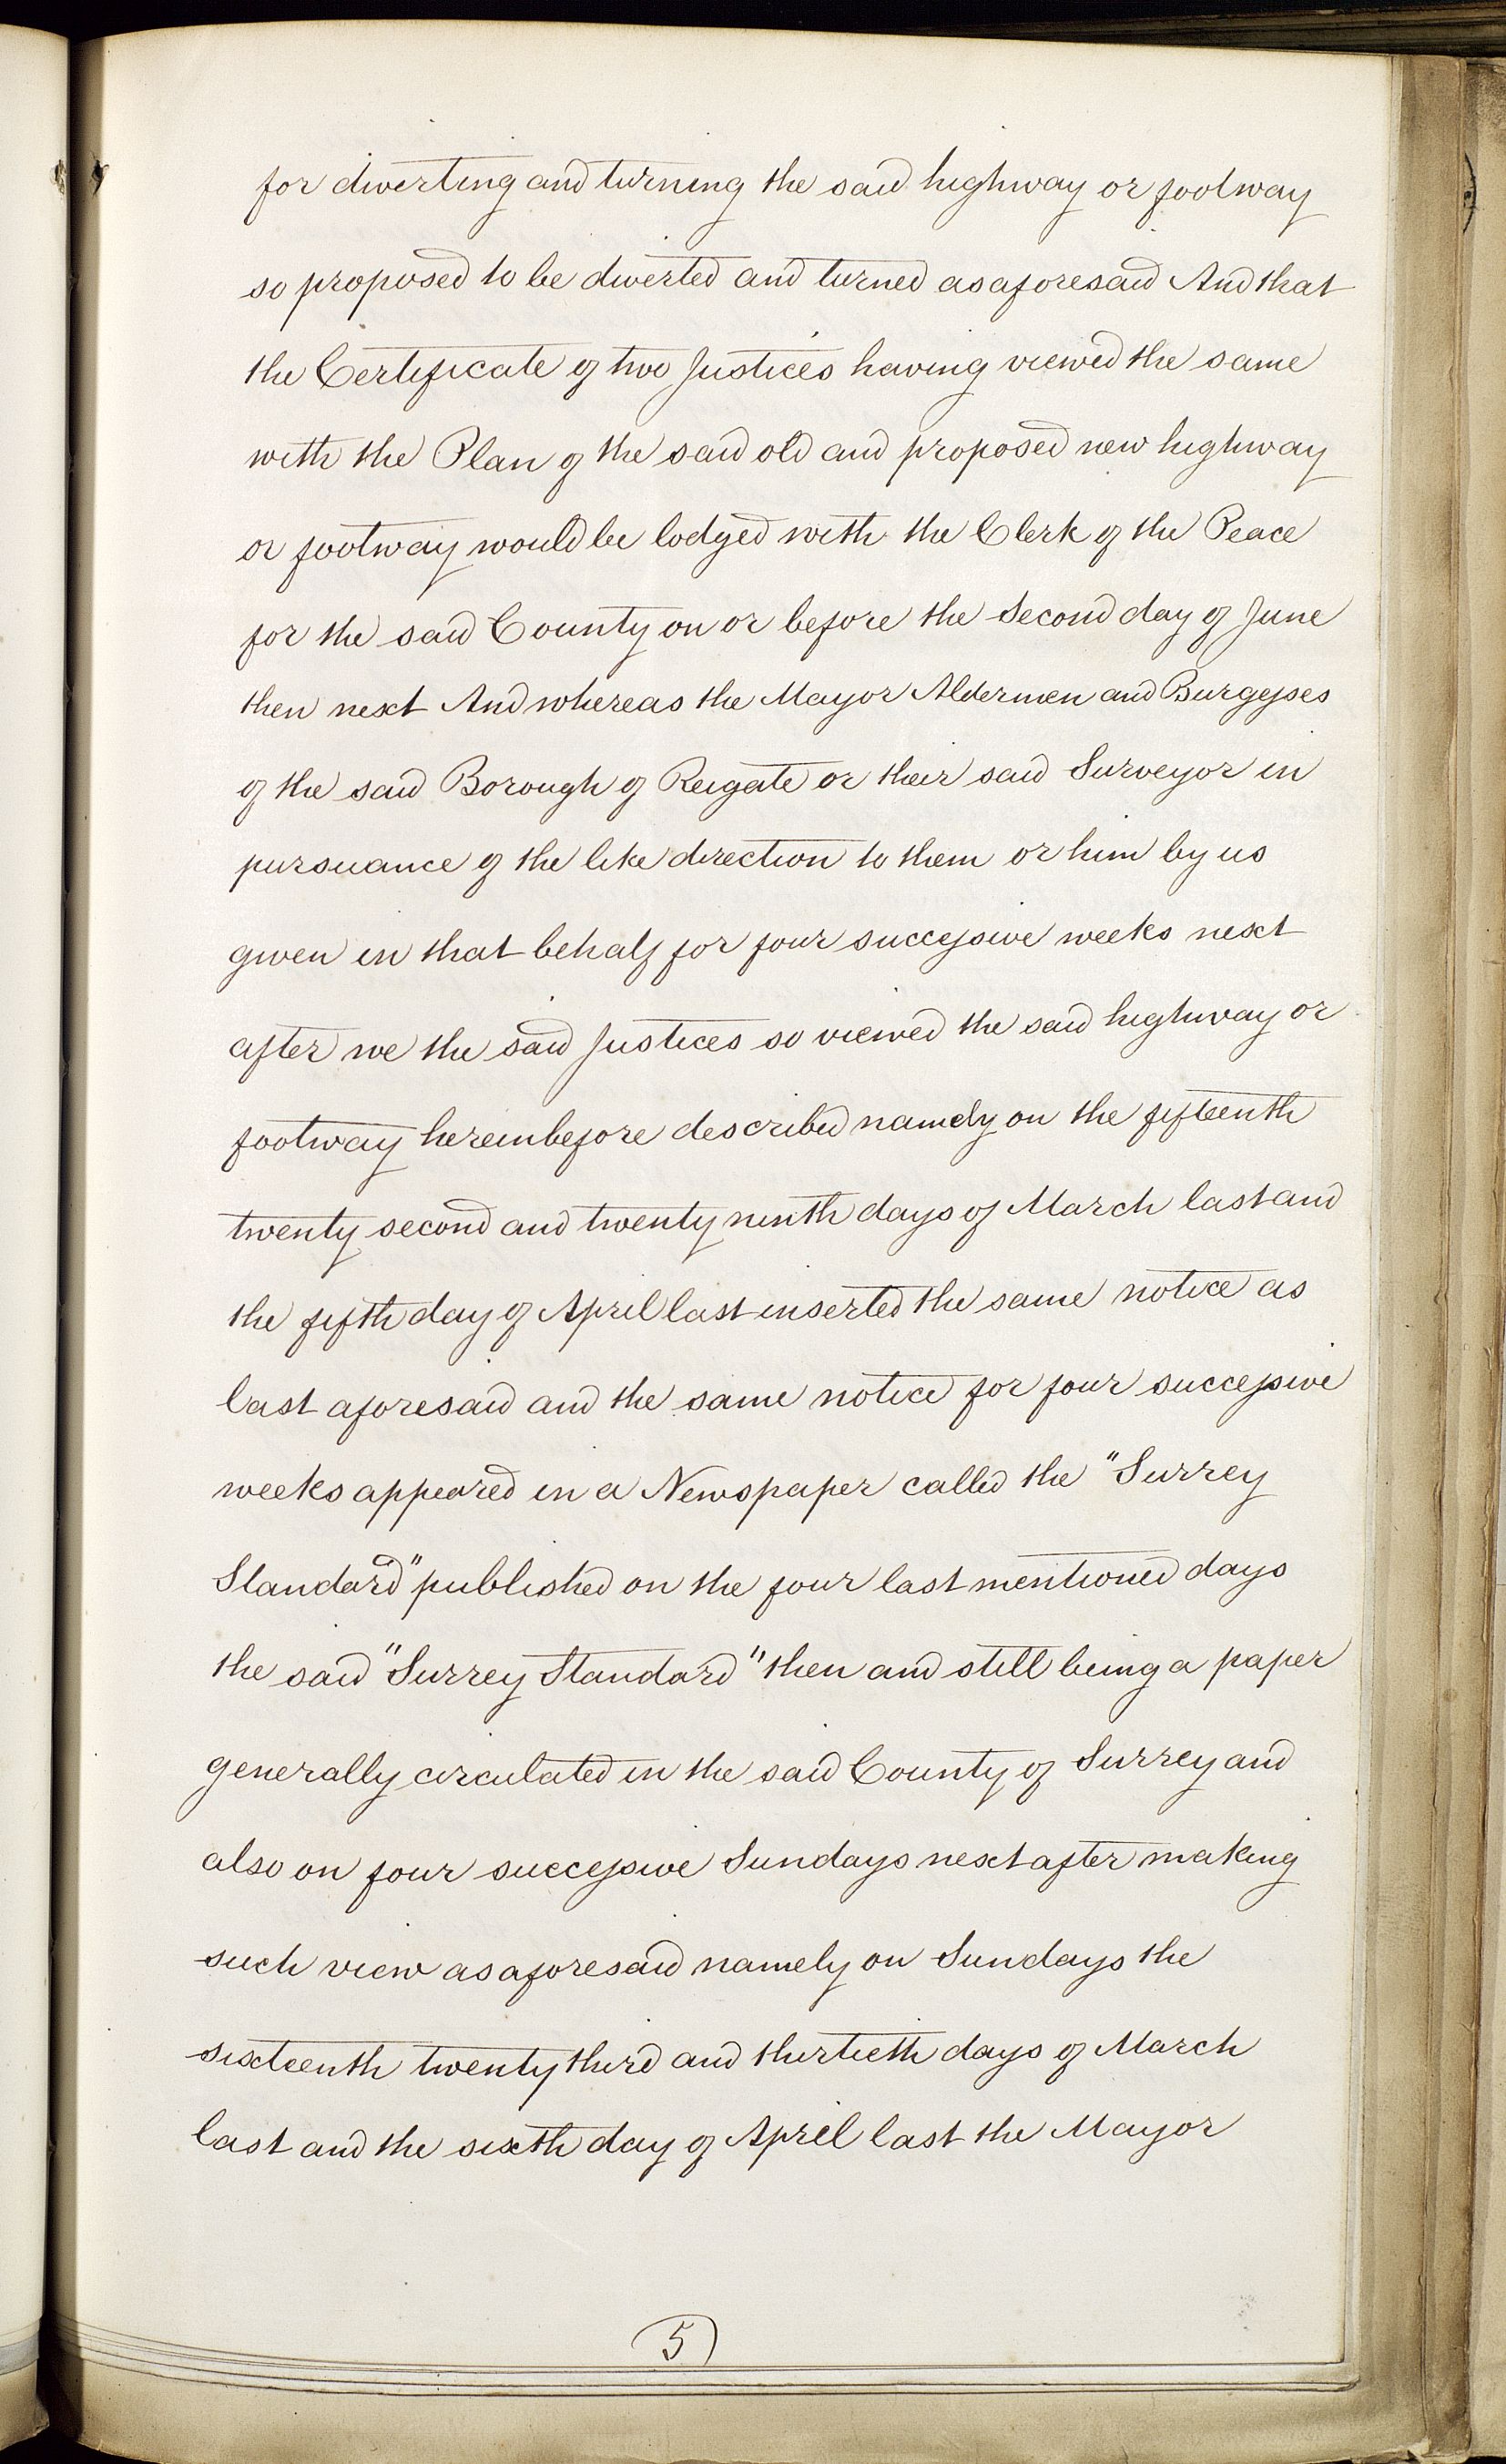 for diverting and turning the said highway or footway
so proposed to be diverted and turned as aforesaid And that
the Certificate of two Justices having viewed the same
with the Plan of the said old and proposed new highway
or footway would be lodged with the Clerk of the Peace
for the said County on or before the Second day of June
then next And whereas the Mayor Aldermen and Burgesses
of the said Borough of Reigate or their said Surveyor in
pursuance of the like direction to them or him by us
given in that behalf for four successive weeks next
after we the said Justices so viewed the said highway or
footway hereinbefore described namely on the fifteenth
twenty second and twenty ninth days of March last and
the fifth day of April last inserted the same notice as
last aforesaid and the same notice for four successive
weeks appeared in a Newspaper called the "Surrey
Standard" published on the four last mentioned days
the said "Surrey Standard" then and still being a paper
generally circulated in the said County of Surrey and
also on four successive Sundays next after making
such view as aforesaid namely on Sundays the
sixteenth twenty third and thirtieth days of March
last and the sixth day of April last the Mayor
5